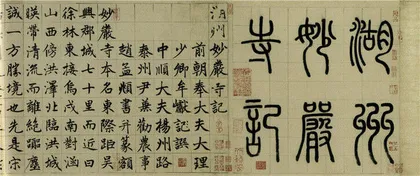 湖州
妙嚴
寺記
湖州妙嚴寺記
前朝奉大夫大理
少卿牟巘譔
中順大夫揚州路
泰州尹兼勸農事
趙孟頫書并篆額
妙嚴寺本名東際距吳
興郡城七十里而近曰
徐林東接烏戍南對涵
山西傍洪澤北臨洪城
映帶清流而離絕囂塵
誠一方勝境也先是宋